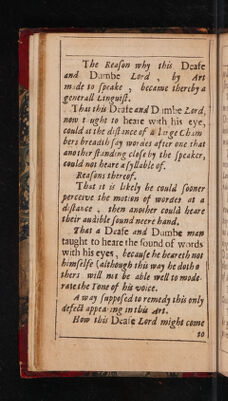 The Reason why this Deafe
and Dumbe Lord , by Art
made to speake , became thereby a
generall Linguist.
That this Deafe and Dumbe Lord,
now taught to heare with his eye,
could at the distance of a large Cham
bers breadth say wordes after one that
another standing close by the speaker,
could not heare a syllable of.
Reasons thereof.
That it is likely he could sooner
perceive the motion of wordes at a
distance , then another could heare
their audible sound neere hand.
That a Deafe and Dumbe man
taught to heare the sound of words
with his eyes, because he heareth not
himselfe (although this way he doth o
thers will not be able well to mode-
rate the Tone of his voice.
A way supposed to remedy this only
defect appearing in this Art.
How this Deafe Lord might come
to